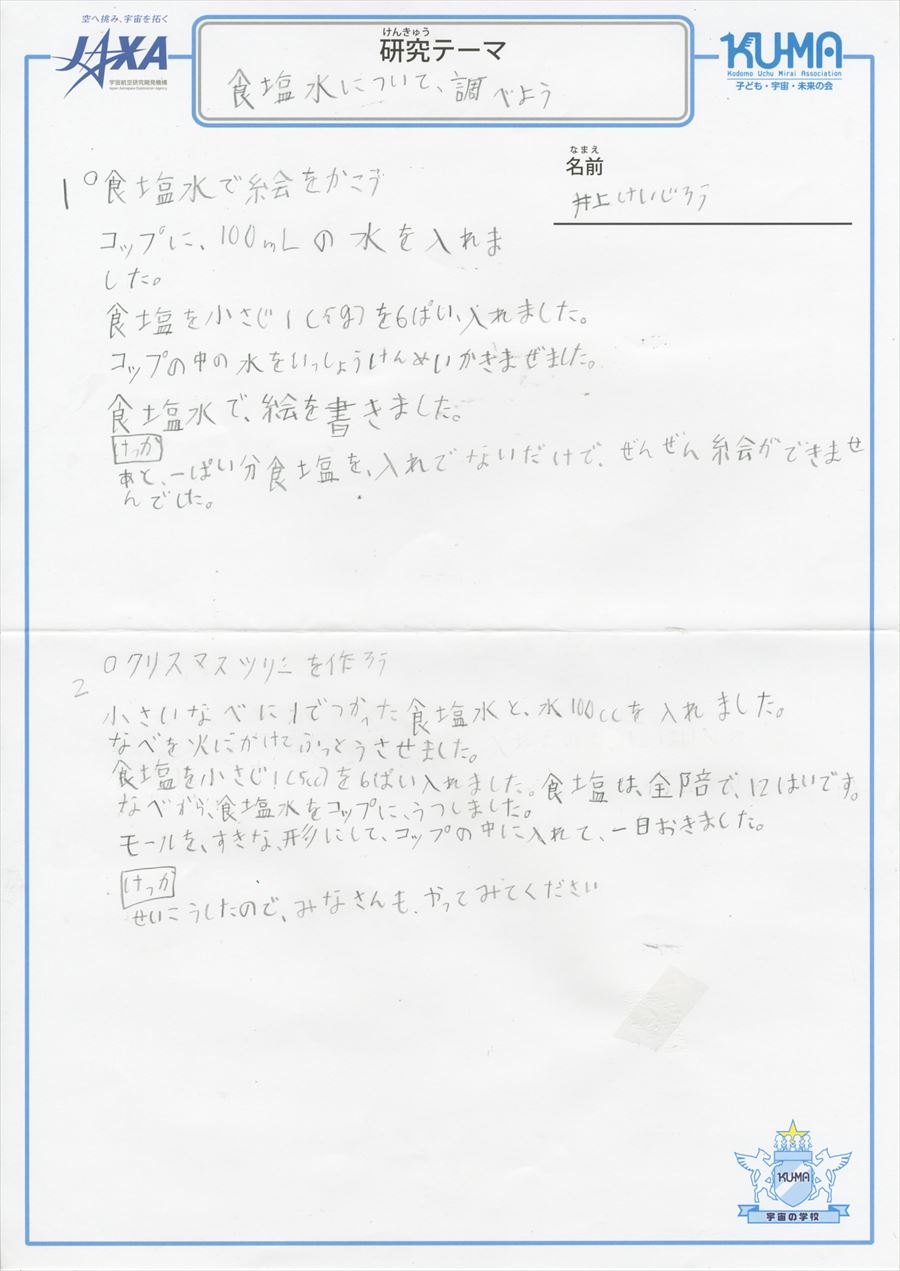 空へ挑み、宇宙を拓く
JAXA
宇宙航空研究開発機構
Japan Aerospace Exploration Agency
けんきゅう
研究テーマ
食塩水について、調べよう
KU-MA
Kodomo Uchu Mirai Association
子ども・宇宙・未来の会
なまえ
名前
井上けいじろう
1 ○食塩水で絵をかこう
コップに、100mLの水を入れま
した。
食塩を小さじ1(5g)を6ぱい入れました。
コップの中の水をいっしょうけんめいかきまぜました。
食塩水で、絵を書きました。
けっか
あと、一ぱい分食塩を、入れでないだけで、ぜんぜん絵ができませ
んでした。
2 ○クリスマスツリーを作ろう
小さいなべに1でつかった食塩水と、水100ccを入れました。
なべを火にかけてふっとうさせました。
食塩を小さじ1(5cc)を6ぱい入れました。食塩は、全陪で、12はいです。
なべから、食塩水をコップに、うつしました。
モールを、すきな、形にして、コップの中に入れて、一日おきました。
けっか
せいこうしたので、みなさんも、やってみてください
KU-MA
宇宙の学校